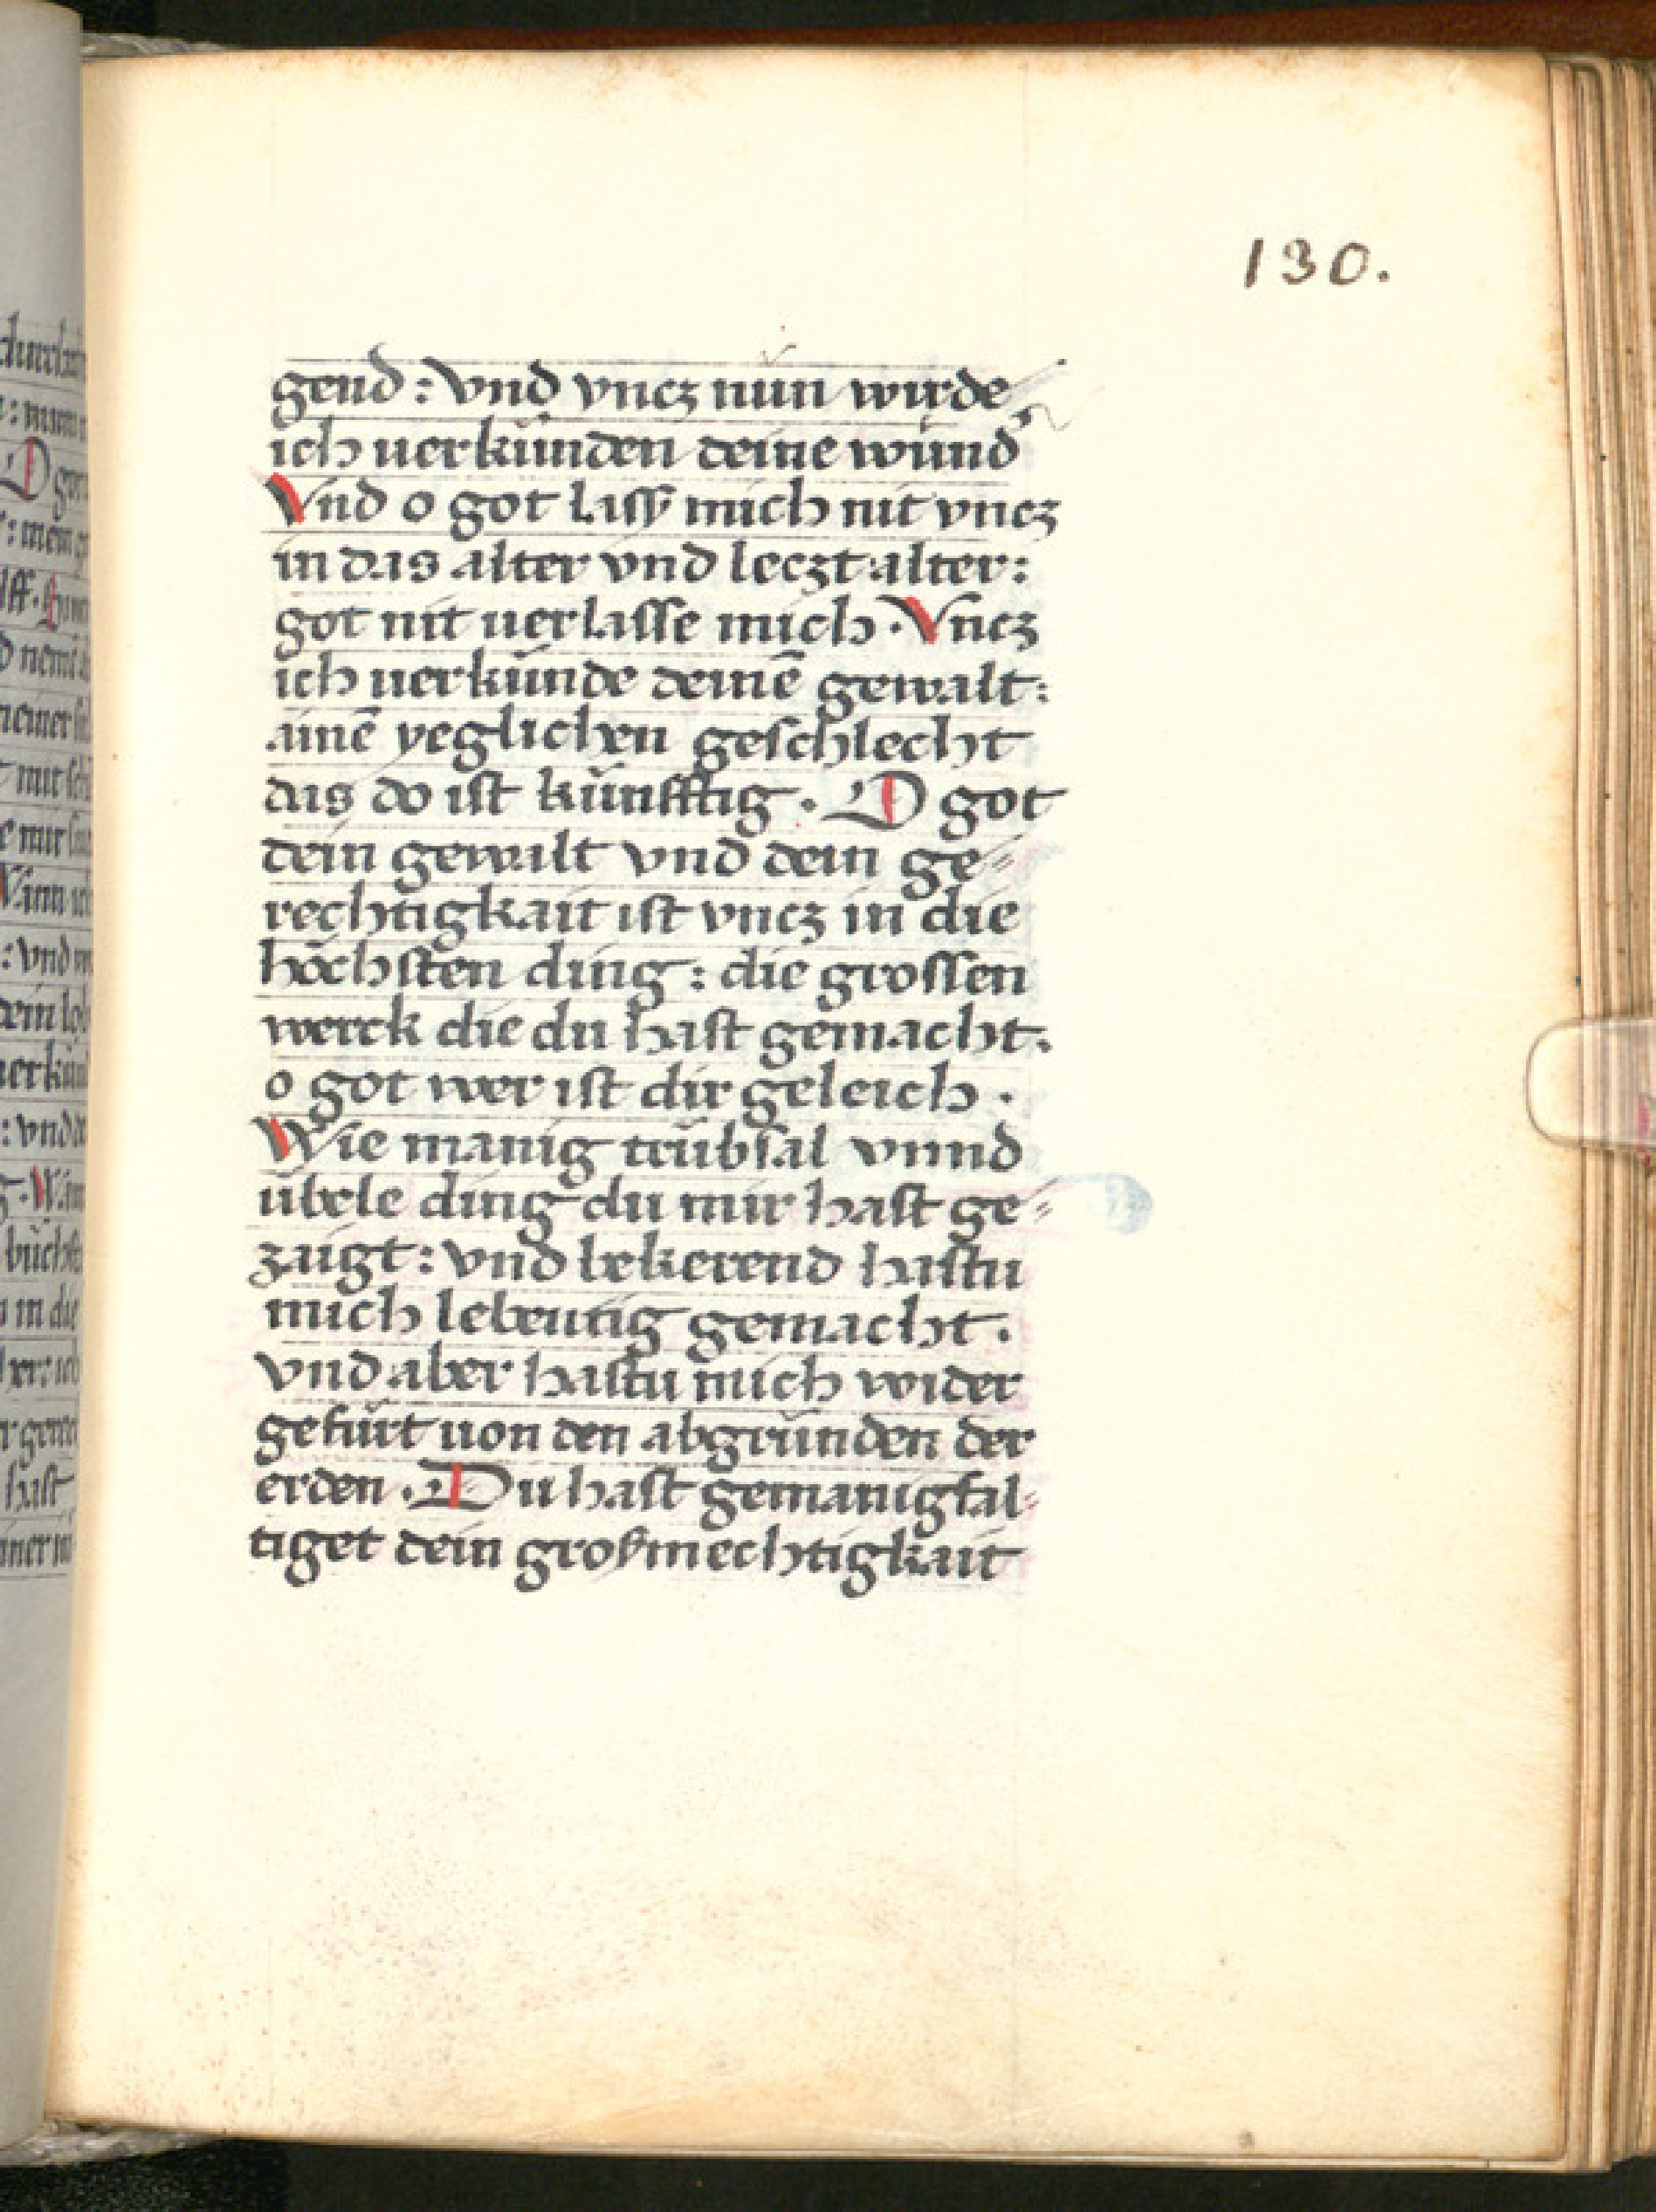 130.
gend : vnd vncz nun wirde
ich uerkünden deine wund᷑
Vnd o got lass mich nit vncz
in das alter vnd leczt alter :
got nit uerlasse mich · Vncz
ich uerkünde deinē gewalt :
ainē yeglichen geschlecht
das do ist künfftig · O got
dein gewalt vnd dein ge⸗
rechtigkait ist vncz in die
höchsten ding : die grossen
werck die du hast gemacht.
o got wer ist dir geleich ·
Wie manig trübsal vnnd
übele ding du mir hast ge⸗
zaigt : vnd bekerend hastu
mich lebentig gemacht ·
vnd aber hastu mich wider
gefürt uon den abgründen der
erden · Du hast gemanigfal⸗
tiget dein großmechtigkait